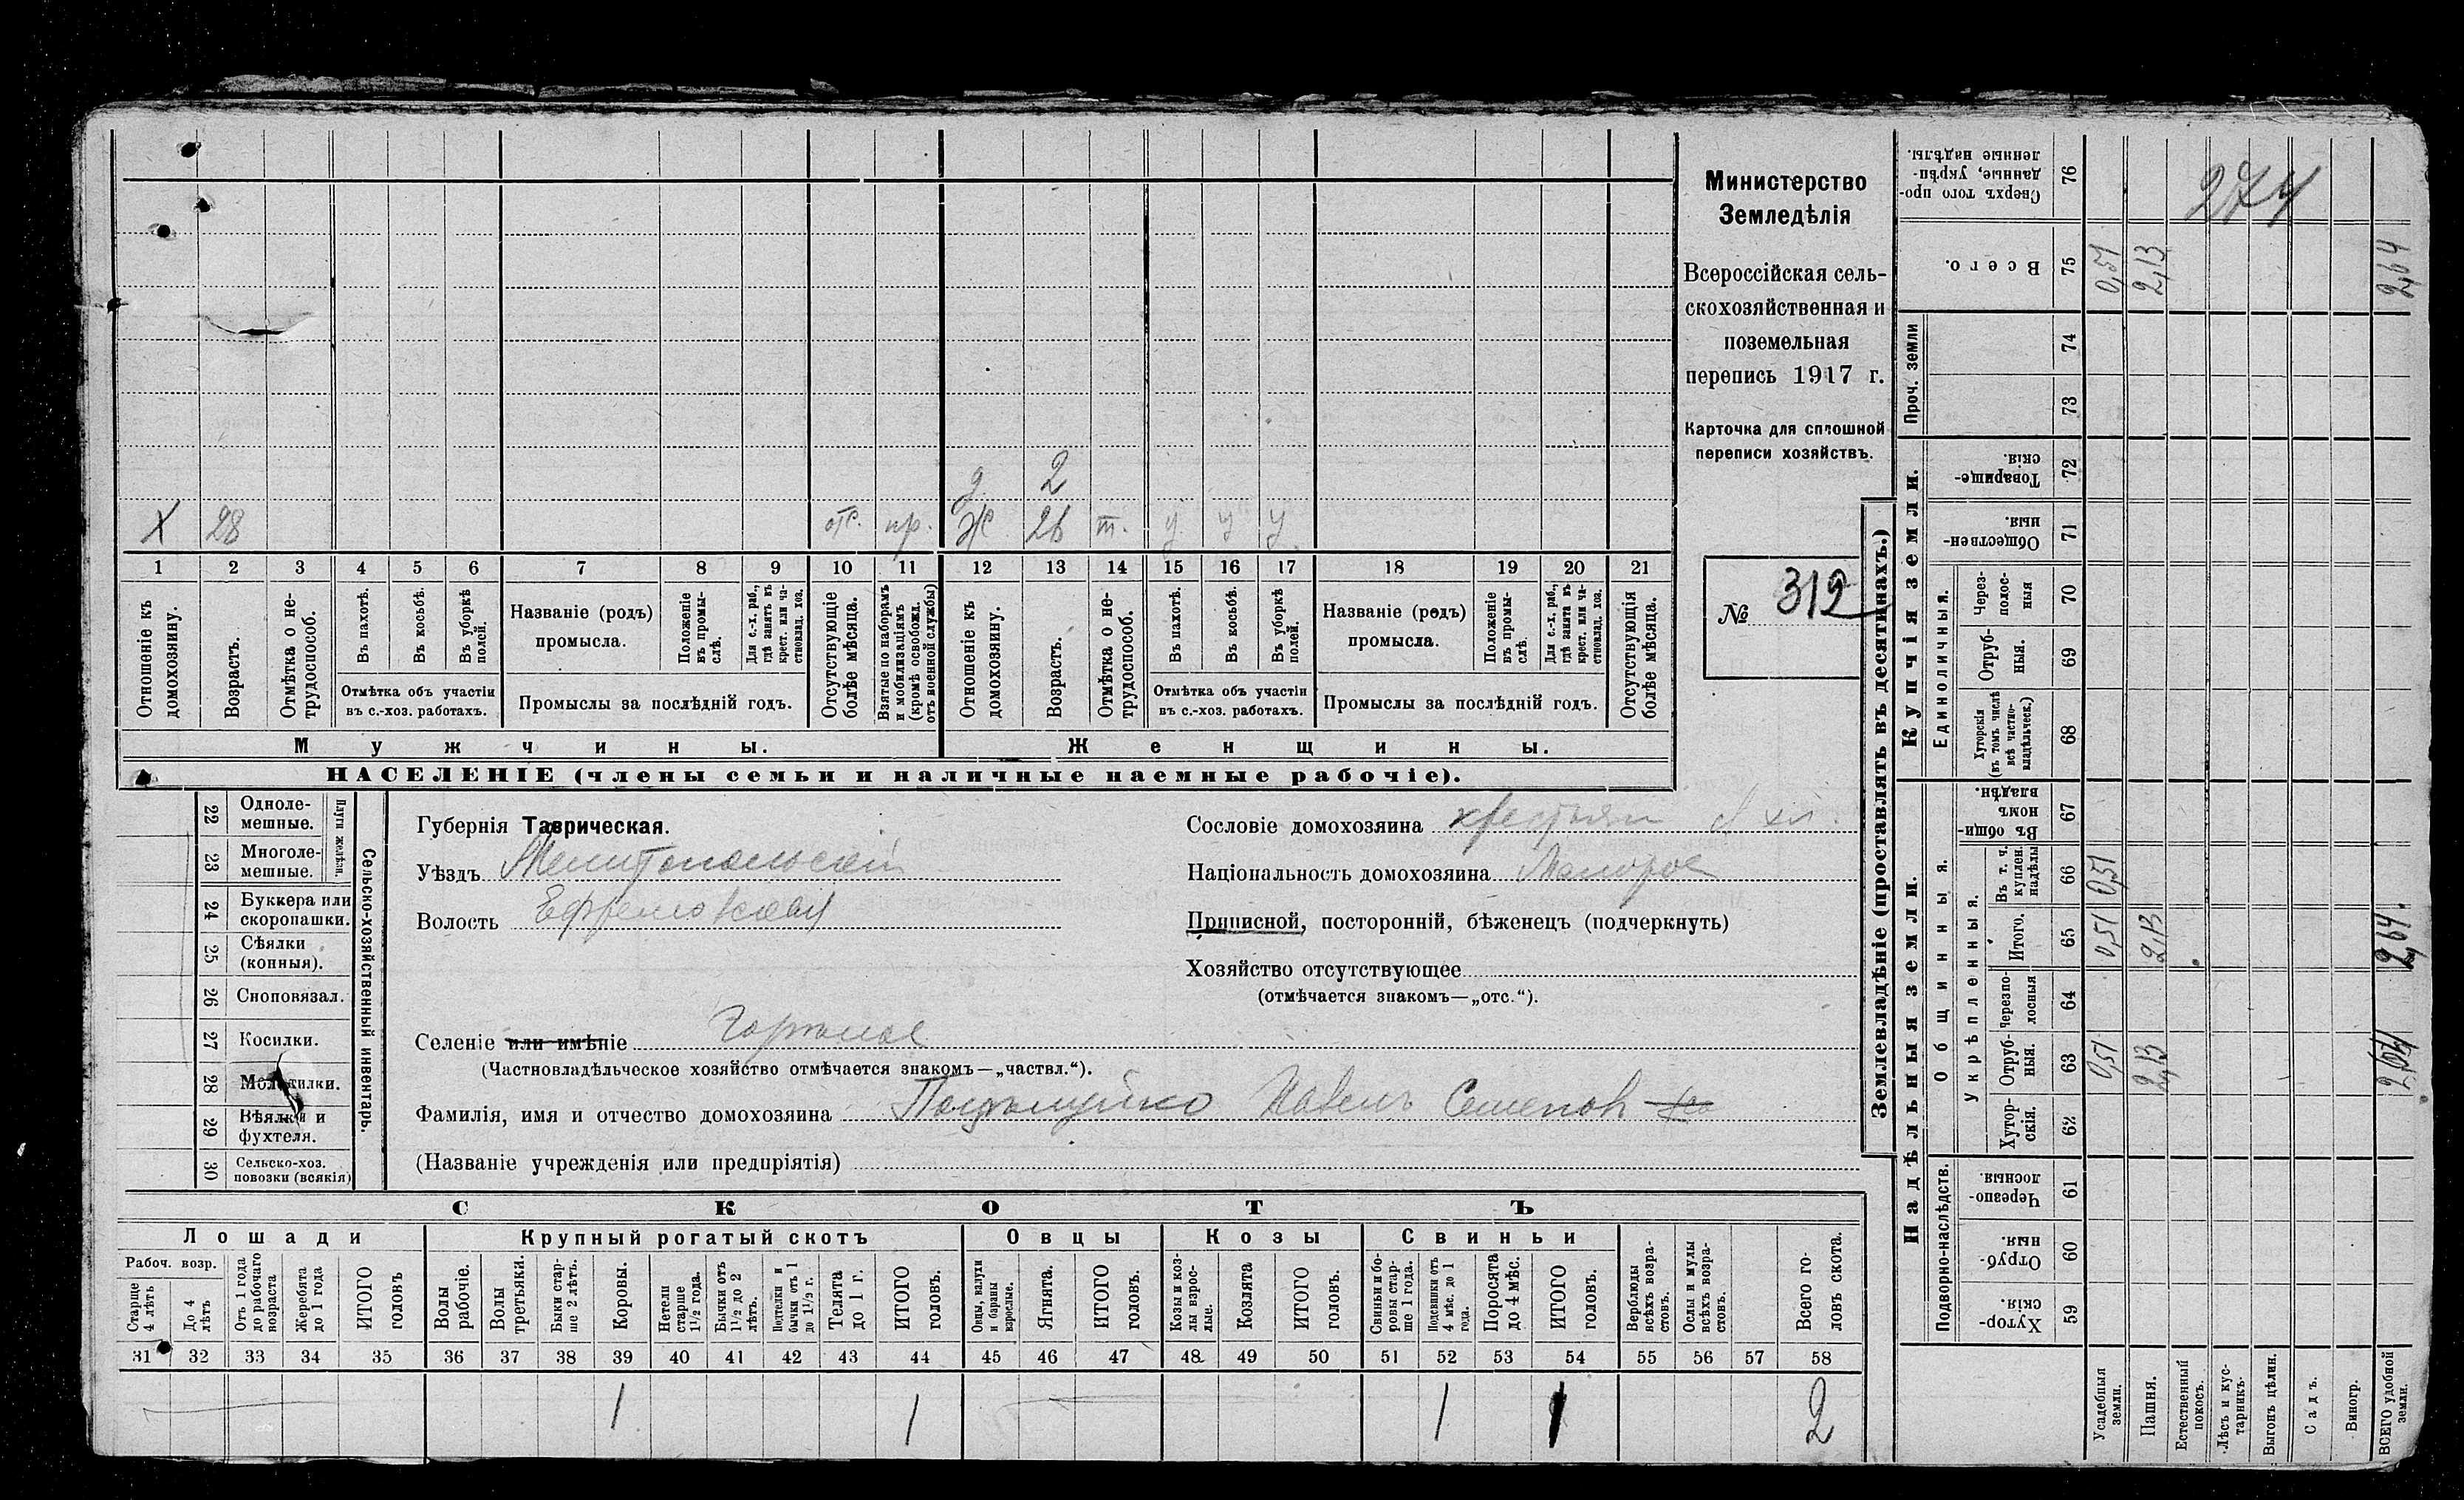 Х 28 отс. пр.
д 2
Ж 26 т. у у у
1 2 3 4 5 6 7 8 9 10 11 12 13 14 15 16 17 18 19 20 21
Отношеніе къ домохозяину.
Возрастъ.
Отмѣтка о нетрудоспособ.
Въ пахотѣ.
Въ косьбѣ.
Въ уборкѣ полей.
Отмѣтка объ участіи
въ с.-хоз. работахъ.
Названіе (родъ)
промысла.
Положеніе въ промыслѣ.
Для с.-х. раб., гдѣ занятъ въ крест. или частновлад. хоз.
Промыслы за послѣдній годъ.
Отсутствующіе болѣе мѣсяца.
Взятые по наборамъ и мобилизаціямъ (кромѣ освобожд. отъ военной службы)
Отношеніе къ домохозяину.
Возрастъ.
Отмѣтка о нетрудоспособ.
Въ пахотѣ.
Въ косьбѣ.
Въ уборкѣ полей.
Отмѣтка объ участіи
въ с.-хоз. работахъ.
Названіе (родъ)
промысла.
Положеніе въ промыслѣ.
Для с.-х. раб., гдѣ занята въ крест. или частновлад. хоз.
Промыслы за послѣдній годъ.
Отсутствующія болѣе мѣсяца.
Мужчины.
Женщины.
НАСЕЛЕНІЕ (члены семьи и наличные наемные рабочіе).
Министерство
Земледѣлія
Всероссійская сель-
скохозяйственная и
поземельная
перепись 1917 г.
Карточка для сплошной
переписи хозяйствъ.
№ 312
22 Однолемешные.
23 Многолемешные.
Плуги желѣзн.
24 Буккера или скоропашки.
25 Сѣялки (конныя).
26 Сноповязал.
27 Косилки.
28 Молотилки.
29 Вѣялки и фухтеля.
30 Сельско-хоз. повозки (всякія)
Сельско-хозяйственный инвентарь.
Губернія Таврическая.
Уѣздъ Мелитопольскій
Волость Ефремовская
Сословіе домохозяина крестьян
Національность домохозяина Малорос
Приписной, посторонній, бѣженецъ (подчеркнуть)
Хозяйство отсутствующее
(отмѣчается знакомъ—„отс.“).
Селеніе или имѣніе Горькое
(Частновладѣльческое хозяйство отмѣчается знакомъ—„частвл.“).
Фамилія, имя и отчество домохозяина Павелъ Семенов
(Названіе учрежденія или предпріятія)
СКОТЪ
Лошади
Крупный рогатый скотъ
Овцы
Козы
Свиньи
Рабоч. возр.
Старше 4 лѣтъ
До 4 лѣтъ
Отъ 1 года до рабочаго возраста
Жеребята до 1 года
ИТОГО головъ
Волы рабочіе.
Волы третьяки.
Быки старше 2 лѣтъ.
Коровы.
Нетели старше 1½ года.
Бычки отъ 1½ до 2 лѣтъ.
Подтелки и бычки отъ 1 до 1½ г.
Телята до 1 г.
ИТОГО головъ.
Овцы, валухи и бараны взрослые.
Ягнята.
ИТОГО головъ.
Козы и козлы взрослые.
Козлята
ИТОГО головъ.
Свиньи и боровы старше 1 года.
Подсвинки отъ 4 мѣс. до 1 года.
Поросята до 4 мѣс.
ИТОГО головъ.
Верблюды всѣхъ возрастовъ.
Ослы и мулы всѣхъ возрастовъ.
Всего головъ скота.
31 32 33 34 35 36 37 38 39 40 41 42 43 44 45 46 47 48 49 50 51 52 53 54 55 56 57 58
1 1 1 1 2
Землевладѣніе (проставлять въ десятинахъ.)
Сверхъ того проданные, укрѣпленные надѣлы. 76
274
Всего. 75 0,51 2,13 2,64
Проч. земли
74
73
Купчія земли.
Товарищескія. 72
Общественныя. 71
Единоличныя.
Черезполосныя 70
Отрубныя. 69
Хуторскія (въ томъ числѣ всѣ частновладѣльческ.) 68
Надѣльныя земли.
Общинныя.
Въ общинномъ владѣн. 67
Укрѣпленныя.
Въ т. ч. куплен. надѣлы 66 0,51
Итого. 65 0,51 2,13 2,64.
Черезполосныя 64
Отрубныя. 63 0,51 2,13 2,64
Хуторскія. 62
Подворно-наслѣдств.
Черезполосныя. 61
Отрубныя. 60
Хуторскія. 59
Усадебныя земли.
Пашня.
Естественный покосъ.
Лѣсъ и кустарникъ.
Выгонъ цѣлин.
Садъ.
Виногр.
ВСЕГО удобной земли.